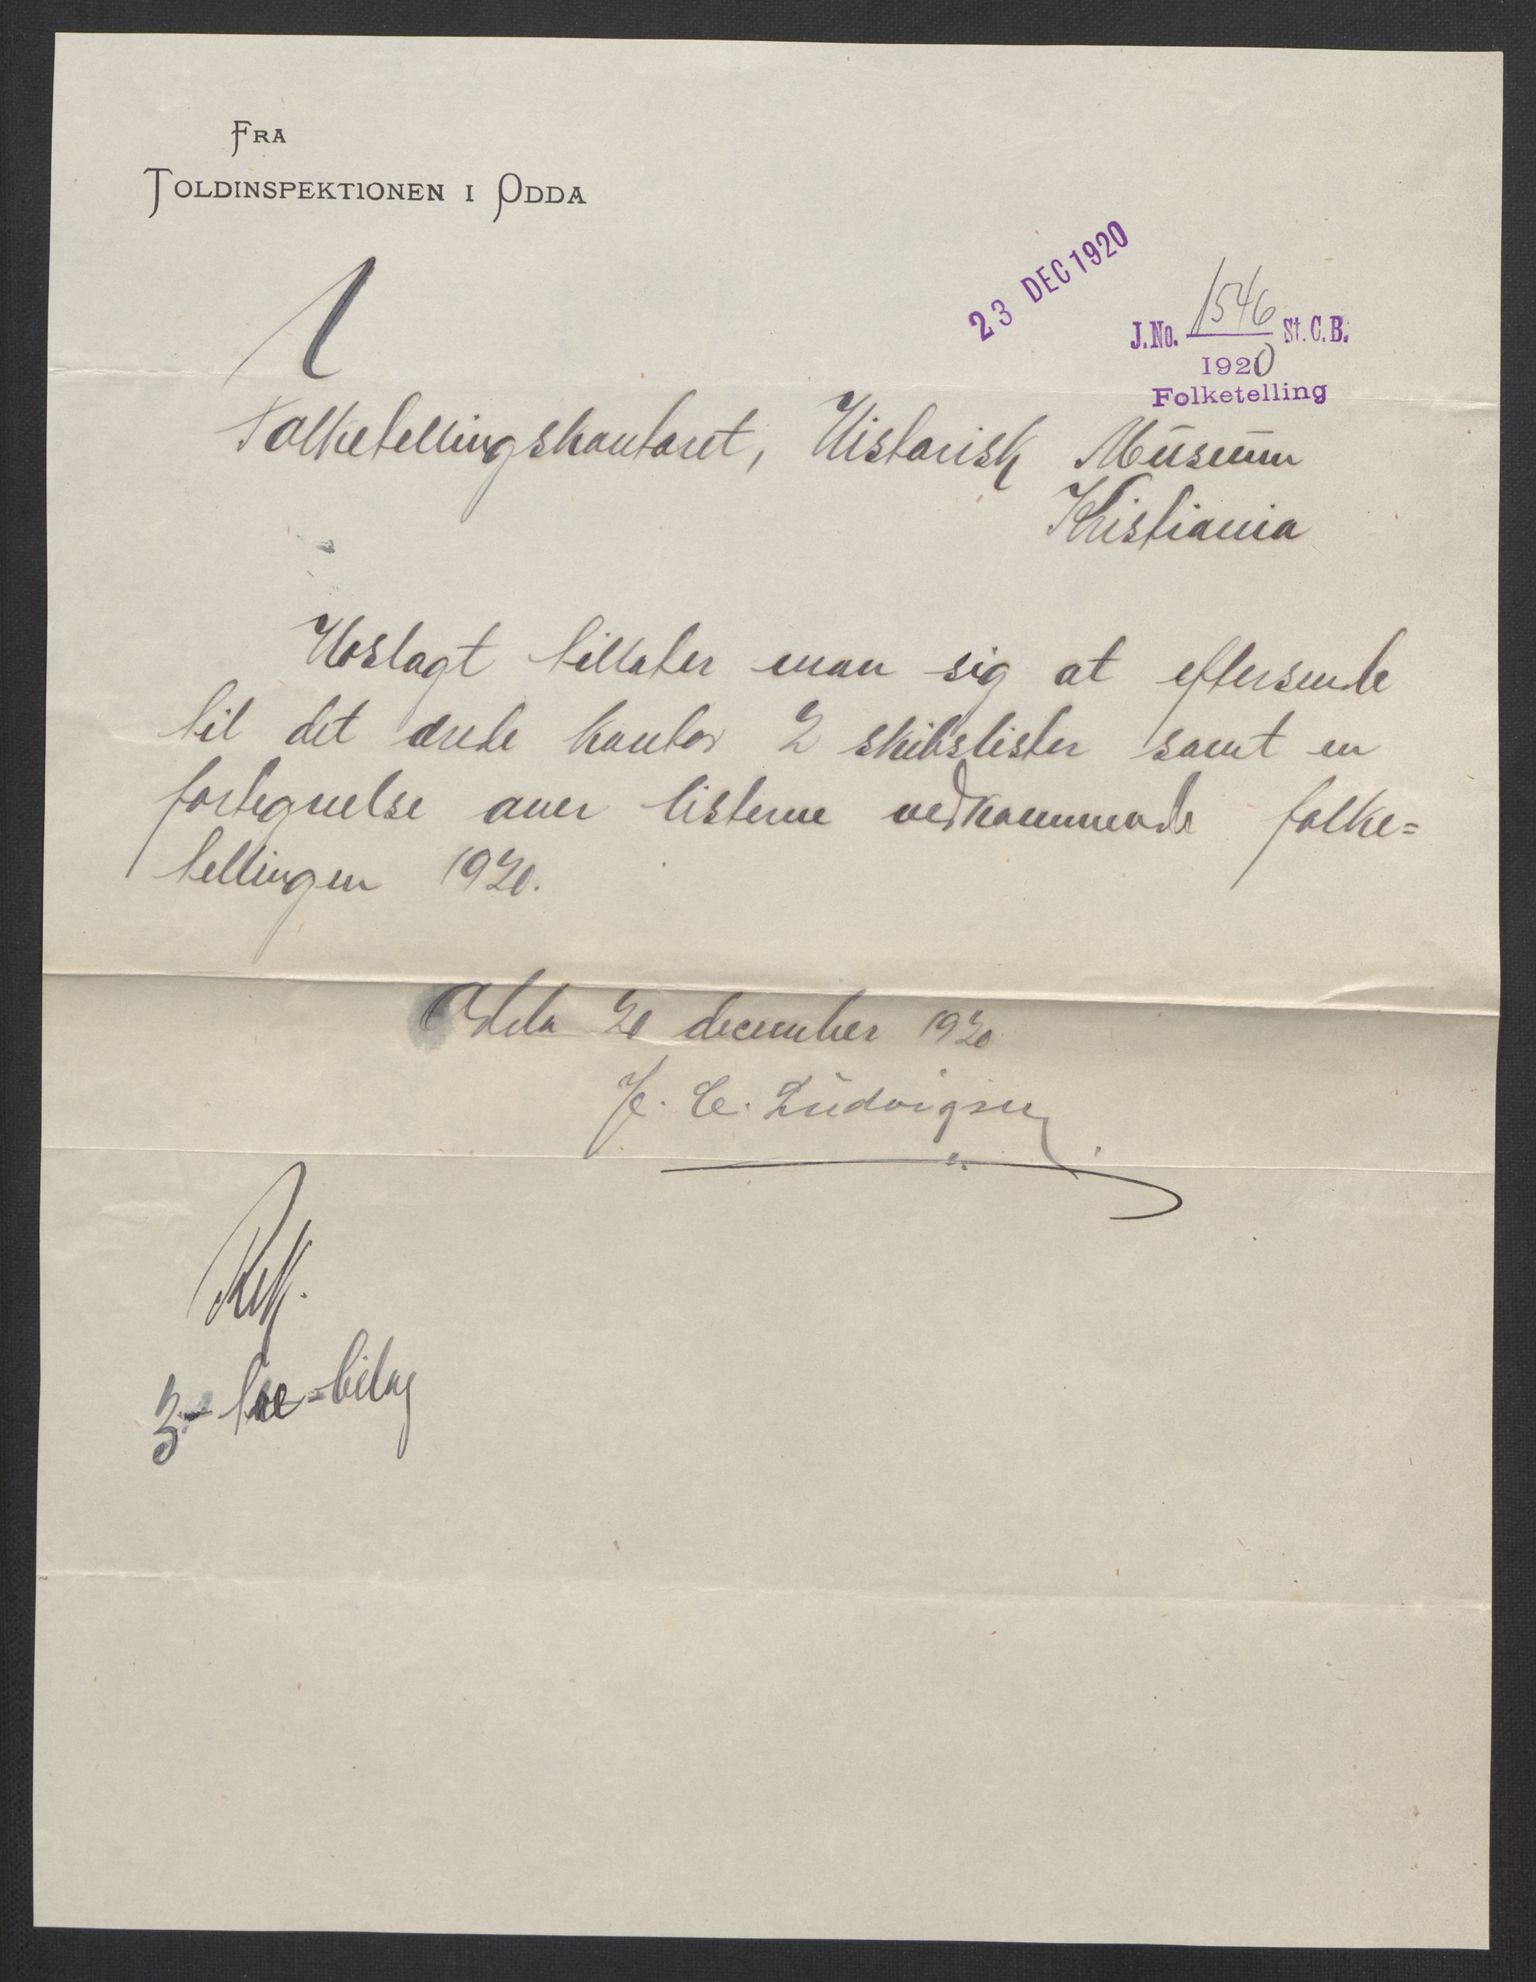 FRA
TOLDINSPEKTIONEN I ODDA
23 DEC 1920
J.No. 1546 St.C.B.
1920
Folketelling
Folketellingskontoret, Historisk Museum
Kristiania
Hoslagt tillater man sig at eftersende
til det ærede kontor 2 skibslister samt en
fortegnelse over listerne vedkommende folke=
tellingen 1920.
Odda 20 december 1920
Ludvigsen
Rek.
3- bilag